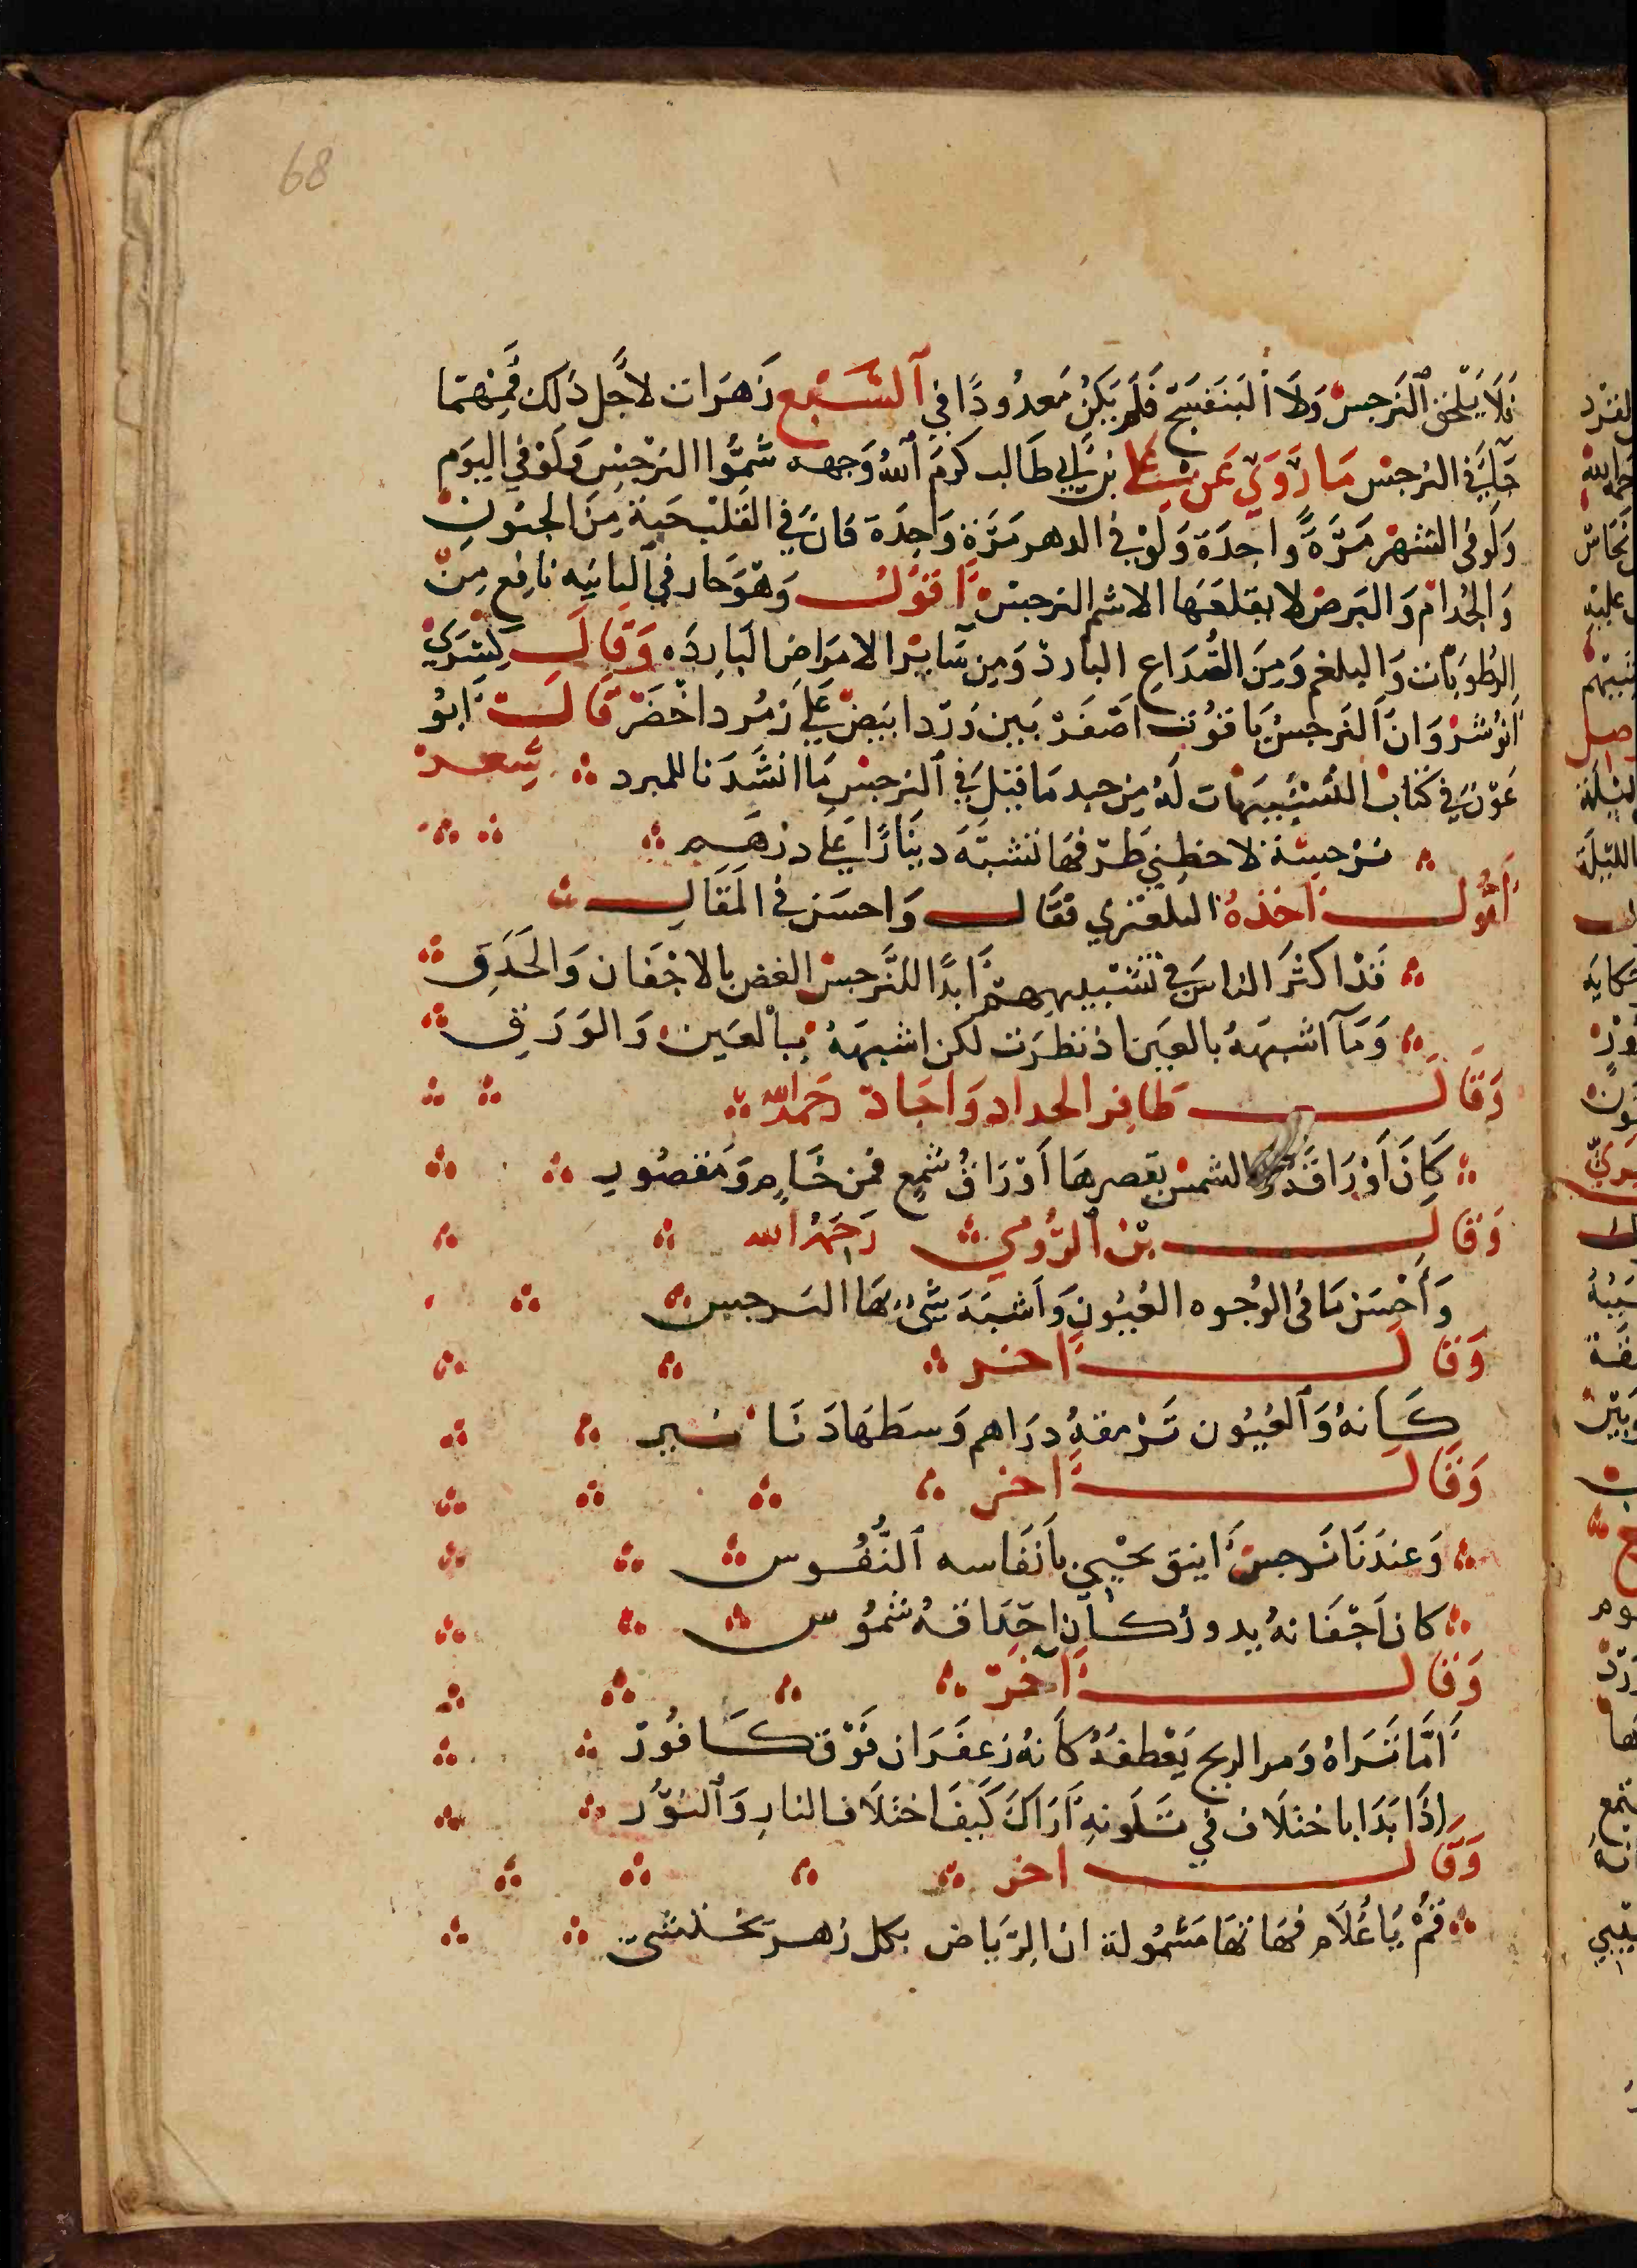 68
فَلَا يَلْحَق النَرجسْ وَلَا البَنَفسَجْ فَلَم يَكُنْ مَعدُودًا في السَّبْع زَهَرَات لاجَل ذلك فمِنْهمَا
جَآ في النرجسْ مَا رُوِيَ عَن عَلي بن أبي طَالب كرمَ اللهُ وَجهه شمُّوا النرْجسْ وَلَوْ في اليَوَم
وَلَو في الشهْر مَرَّةً واحِدَة وَلَوْ في الدهر مَرَّة وَاحِدَة فان في القَلبْ حَبة مِنَ الجنون
وَالجُدام وَالبَرصْ لا يقلعَهَا الا شم النرجسْ أقوُل وَهوَ حَار في الثانيه نافِع مِن
الرُطوبَات وَالبلغم وَمِنَ الصُّدَاعِ البَارد وَمِن سَايْر الامَراضِ البَارِدَه وَقال كِسْرَي
انوُشرْوَان النَرجسُ يَاقوُت اصْفَرْ بَين دَرّ ابيَضْ عَلي زمُرد اخْضَرْ قالت ابوُ
عَوْن في كتاب التشْبيهَات لهُ مِن جيد مَا قيل في النرجسْ مَا انشَدَنا للمبرد شِعرْ
نرْجسَة لاحظني طَرّفهَا تشبَه دينَارًا عَلي درْهَم
أقوُل اخَذهُ البلعتري فقَال وَاحسَن في المقَال
قَدْ اكثرَ الناسَ في تشْبيههِمْ ابدًا للنَّرجسْ الغض بالاجْفَان وَالحَدَقِ
وَمَآ اشبهَهُ بالعَين اذ نظرَت لكن اشبهَهُ بالْعَين وَالوَرَقِ
وَقَال ظافِر الحداد وَاجَادَ رَحمَه الله
كَانَ أوْرَاقَهُ والشمسْ بقصرهَا أوْرَاقُ شمْع فمن خَامٍ وَمَقصُورِ
وَقَال بْن الرُّومي رَحمَهُ الله
وَأحْسَن مَا في الوُجُوه العُيُون وَاشبَه شَيْ بهَا النرجس
وَقَال اخر
كَانهُ وَالعُيُون تَرْمقهُ درَاهم وَسطهَا دَنَانير
وَقَال اخر
وَعندَنَا نرجسْ انيق يحْيي بانْفَاسه النُّفُوس
كان اجْفَانهُ بدورُ كأن احْدَاقهُ شمُوس
وَقَال آخَرَ
أمَّا تَرَاهُ وَمر الريح يَعْطفهُ كأنهُ زعفَرَان فَوْق كَافوُر
اِذَا بَدَا باختلَاف في تَلَونهِ أرَاكَ كَيفَ اختلَاف النارِ وَالنوُّر
وَقَال اخر
قمْ يَا غُلام فهَاتهَا مَشمُولة ان الرّيَاض بكل زهر تختشي